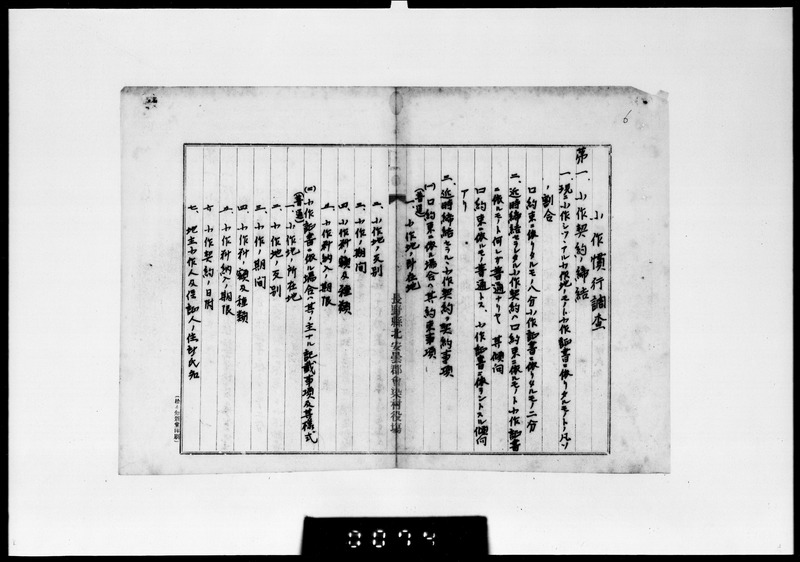 6
小作慣行調査
第一、小作契約ノ締結
一、現ニ小作シツヽアル小作地ノモノト小作証書ニ依リタルモノトノ凡ソ
ノ割合
口約束ニ依リタルモノ八分小作証書ニ依リタルモノ二分
二、近時締結セラルヽ小作契約ハ口約束ニ依ルモノト小作証書
ニ依ルモノト何レガ普通ナリヤ 其傾向
口約束ニ依ルモノ普通トス、小作証書ニ依ラントスル傾向
アリ
三、近時締結セラルヽ小作契約ノ契約事項
(一)口約束ニ依ル場合ハ其ノ約束事項
(普通)
一、小作地ノ所在地
長野縣北安曇郡會染村役場
二、小作地ノ反別
三、小作ノ期間
四、小作料ノ額及種類
五、小作料納入ノ期限
(二)小作証書ニ依ル場合ハ其ノ主ナル記載事項及其様式
(普通)
一、小作地ノ所在地
二、小作地ノ反別
三、小作ノ期間
四、小作料ノ額及種類
五、小作料納入ノ期限
六、小作契約ノ日附
七、地主小作人及保証人ノ住所氏名
0074